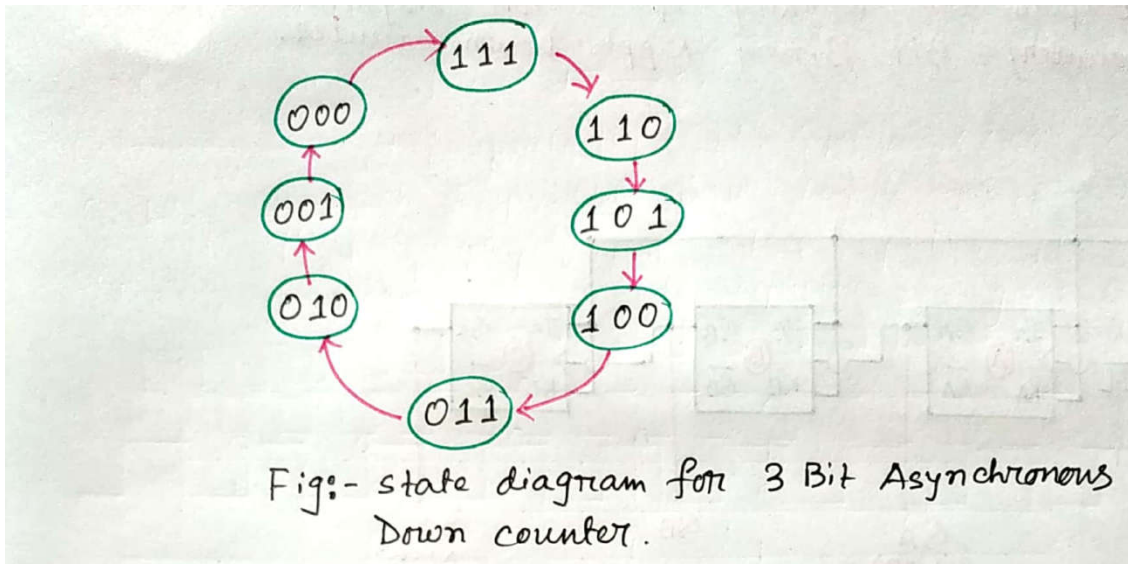 111
000
110
001
101
010
100
011
Fig:- state diagram for 3 Bit Asynchronous
Down counter.